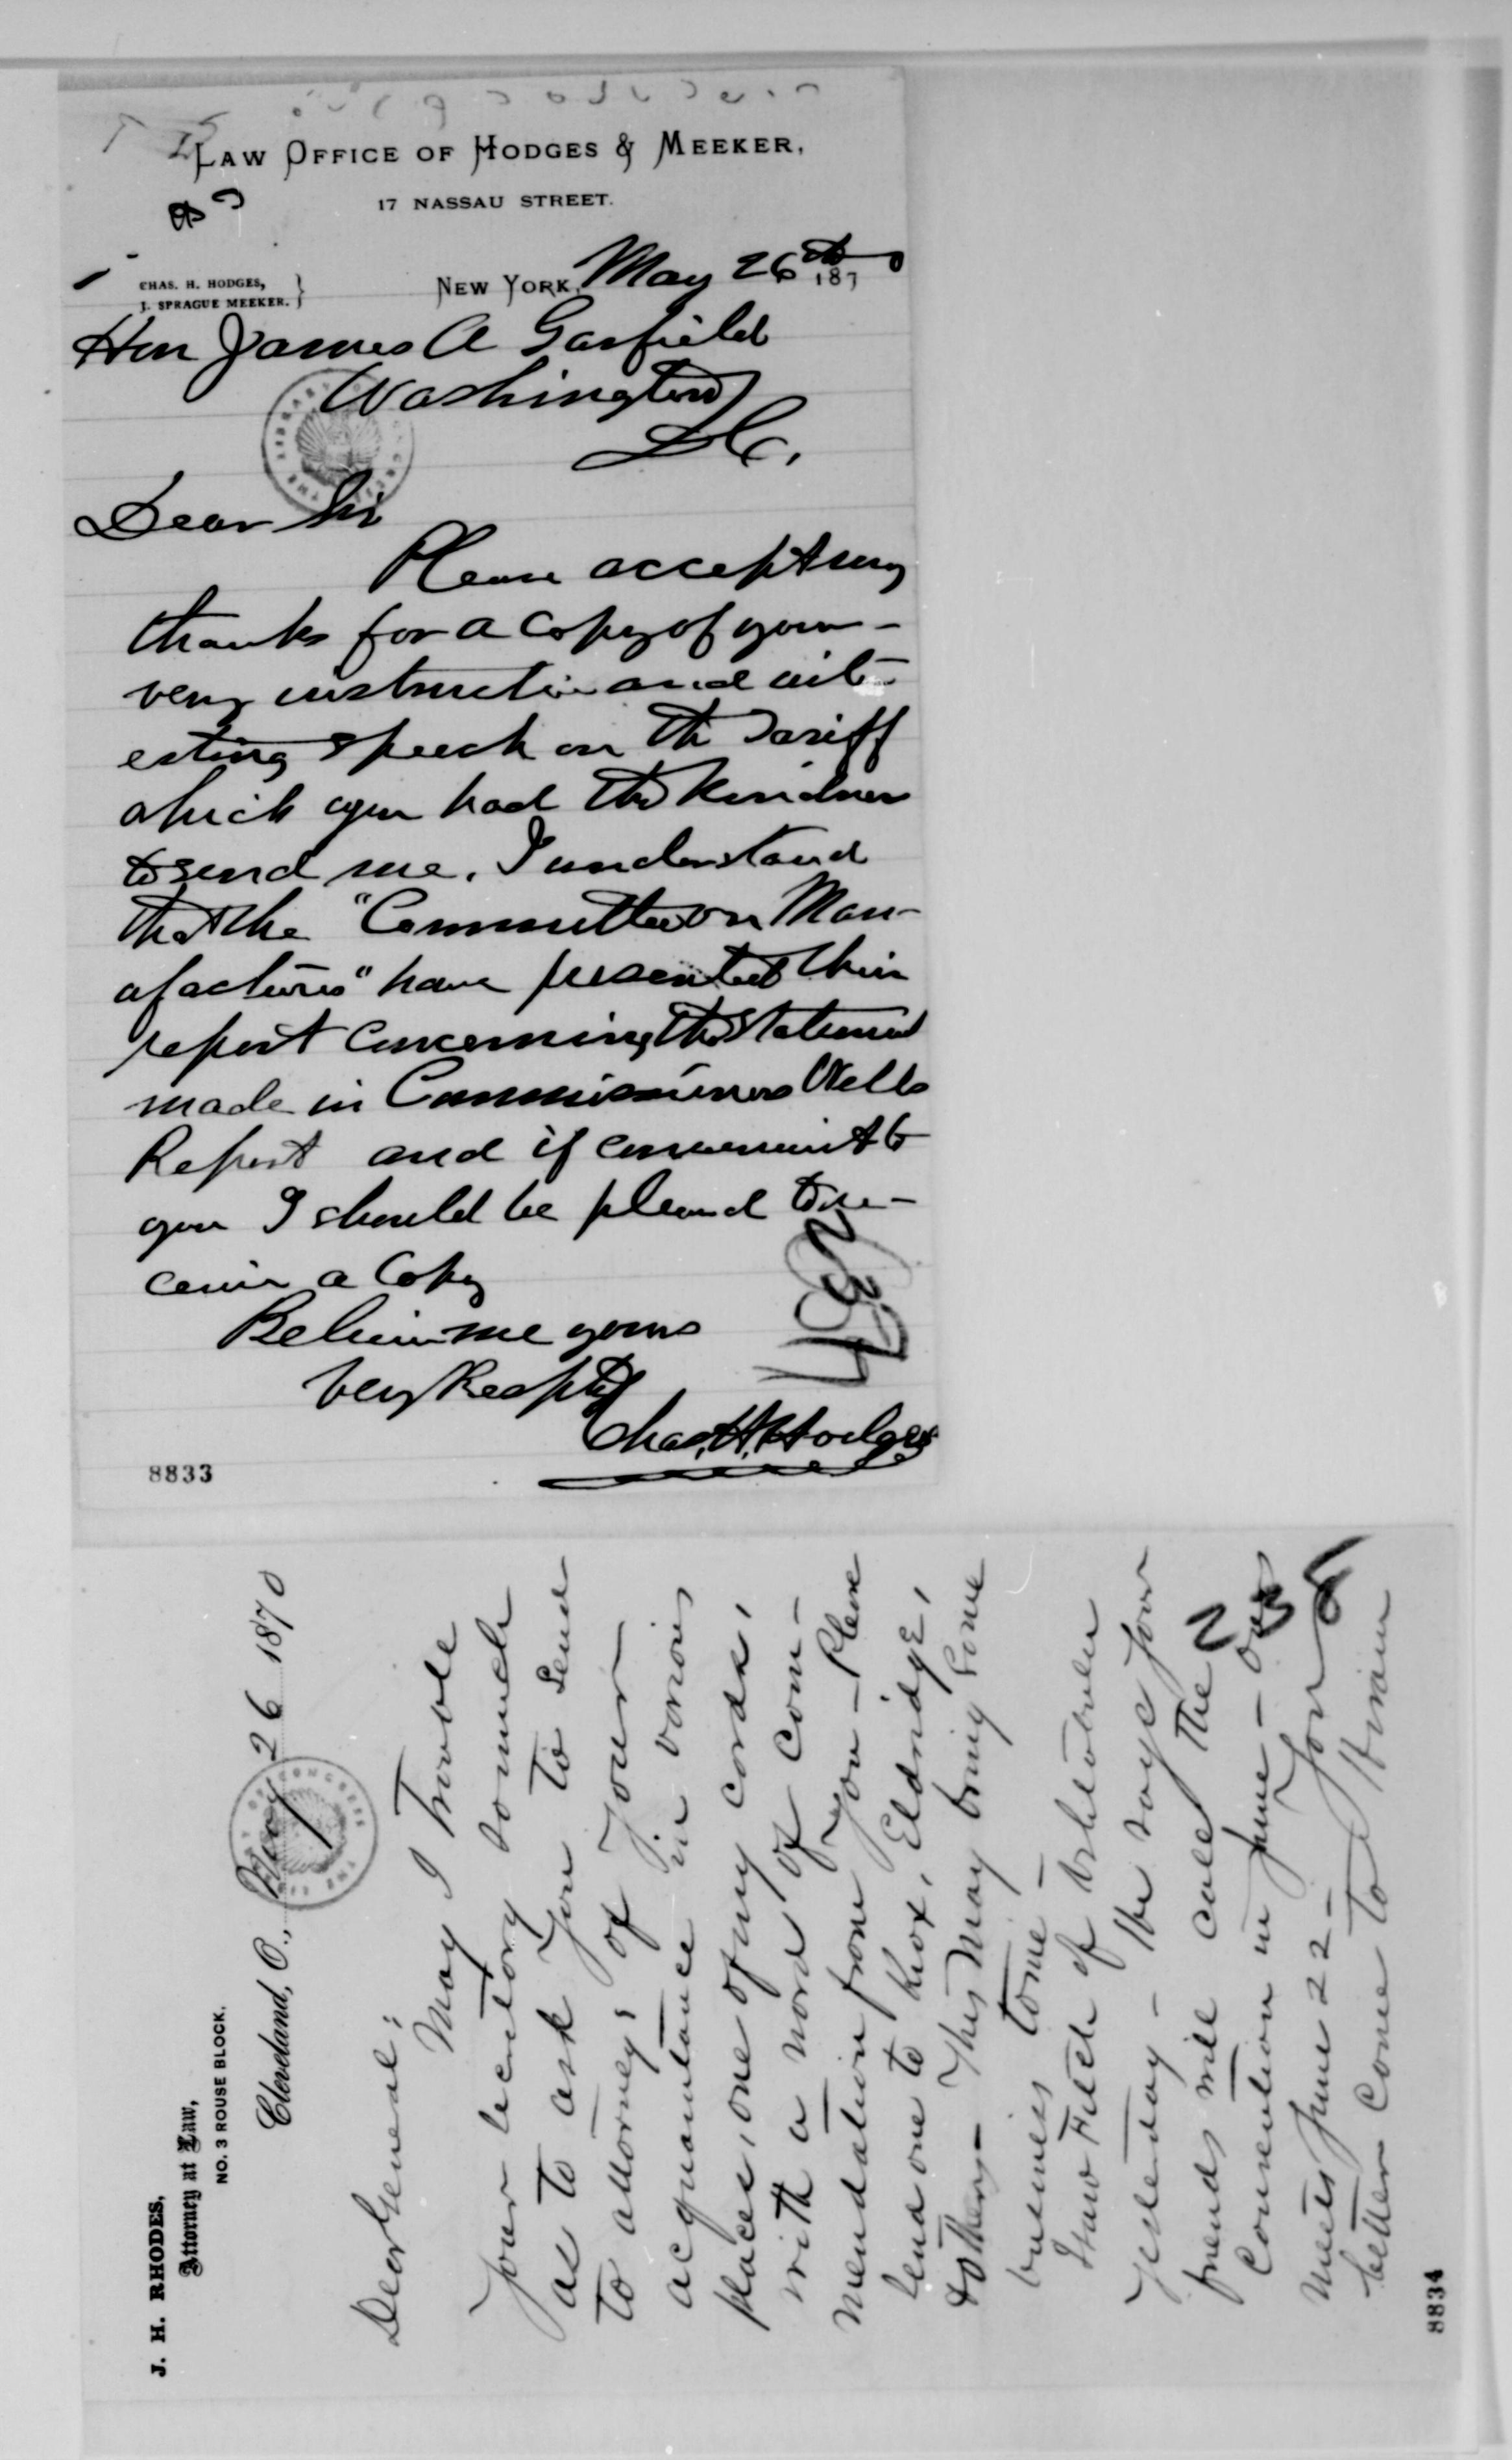 LAW OFFICE OF HODGES & MEEKER,
17 NASSAU STREET.
CHAS. H. HODGES,
J. SPRAGUE MEEKER.
NEW YORK, May 26th 1870
Hon James A Garfield
Washington
D.C.
Dear Sir
Please accept my
thanks for a copy of your
very instructive and inter-
esting speech on the Tariff
which you had the kindness
to send me. I understand
that the "Committee on Man-
ufactures" have presented their
report concerning the statement
made in Commissioners Wells
Report and if convenient to
you I should be pleased to re-
ceive a Copy
Believe me yours
Very Respty
Chas. H. Hodges
8833
J. H. RHODES,
Attorney at Law,
NO. 3 ROUSE BLOCK.
Cleveland, O., May 26 1870
Dear General:
May I trouble
your secretary so much
as to ask you to send
to attorneys of your
acquaintance in various
places, one of my cards,
with a word of com-
mendation from you - Please
send one to Knox, Eldridge,
& others - This may bring some
business to me -
Saw Fitch of Ashtabula
yesterday - He says your
friends will call the
Convention in June - ours
meets June 22 - You
better come to Hiram
8834